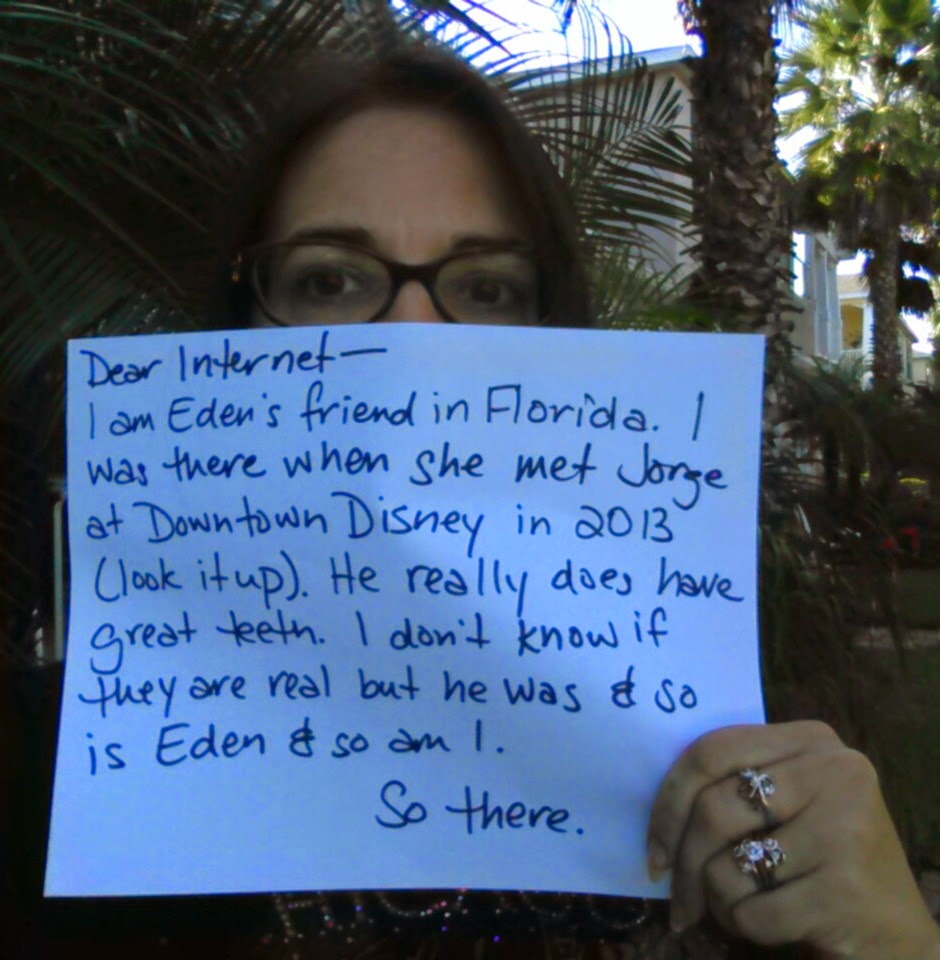 Dear Internet—
I am Eden's friend in Florida. I
was there when she met Jorge
at Downtown Disney in 2013
(look it up). He really does have
great teeth. I don't know if
they are real but he was & so
is Eden & so am I.
So there.